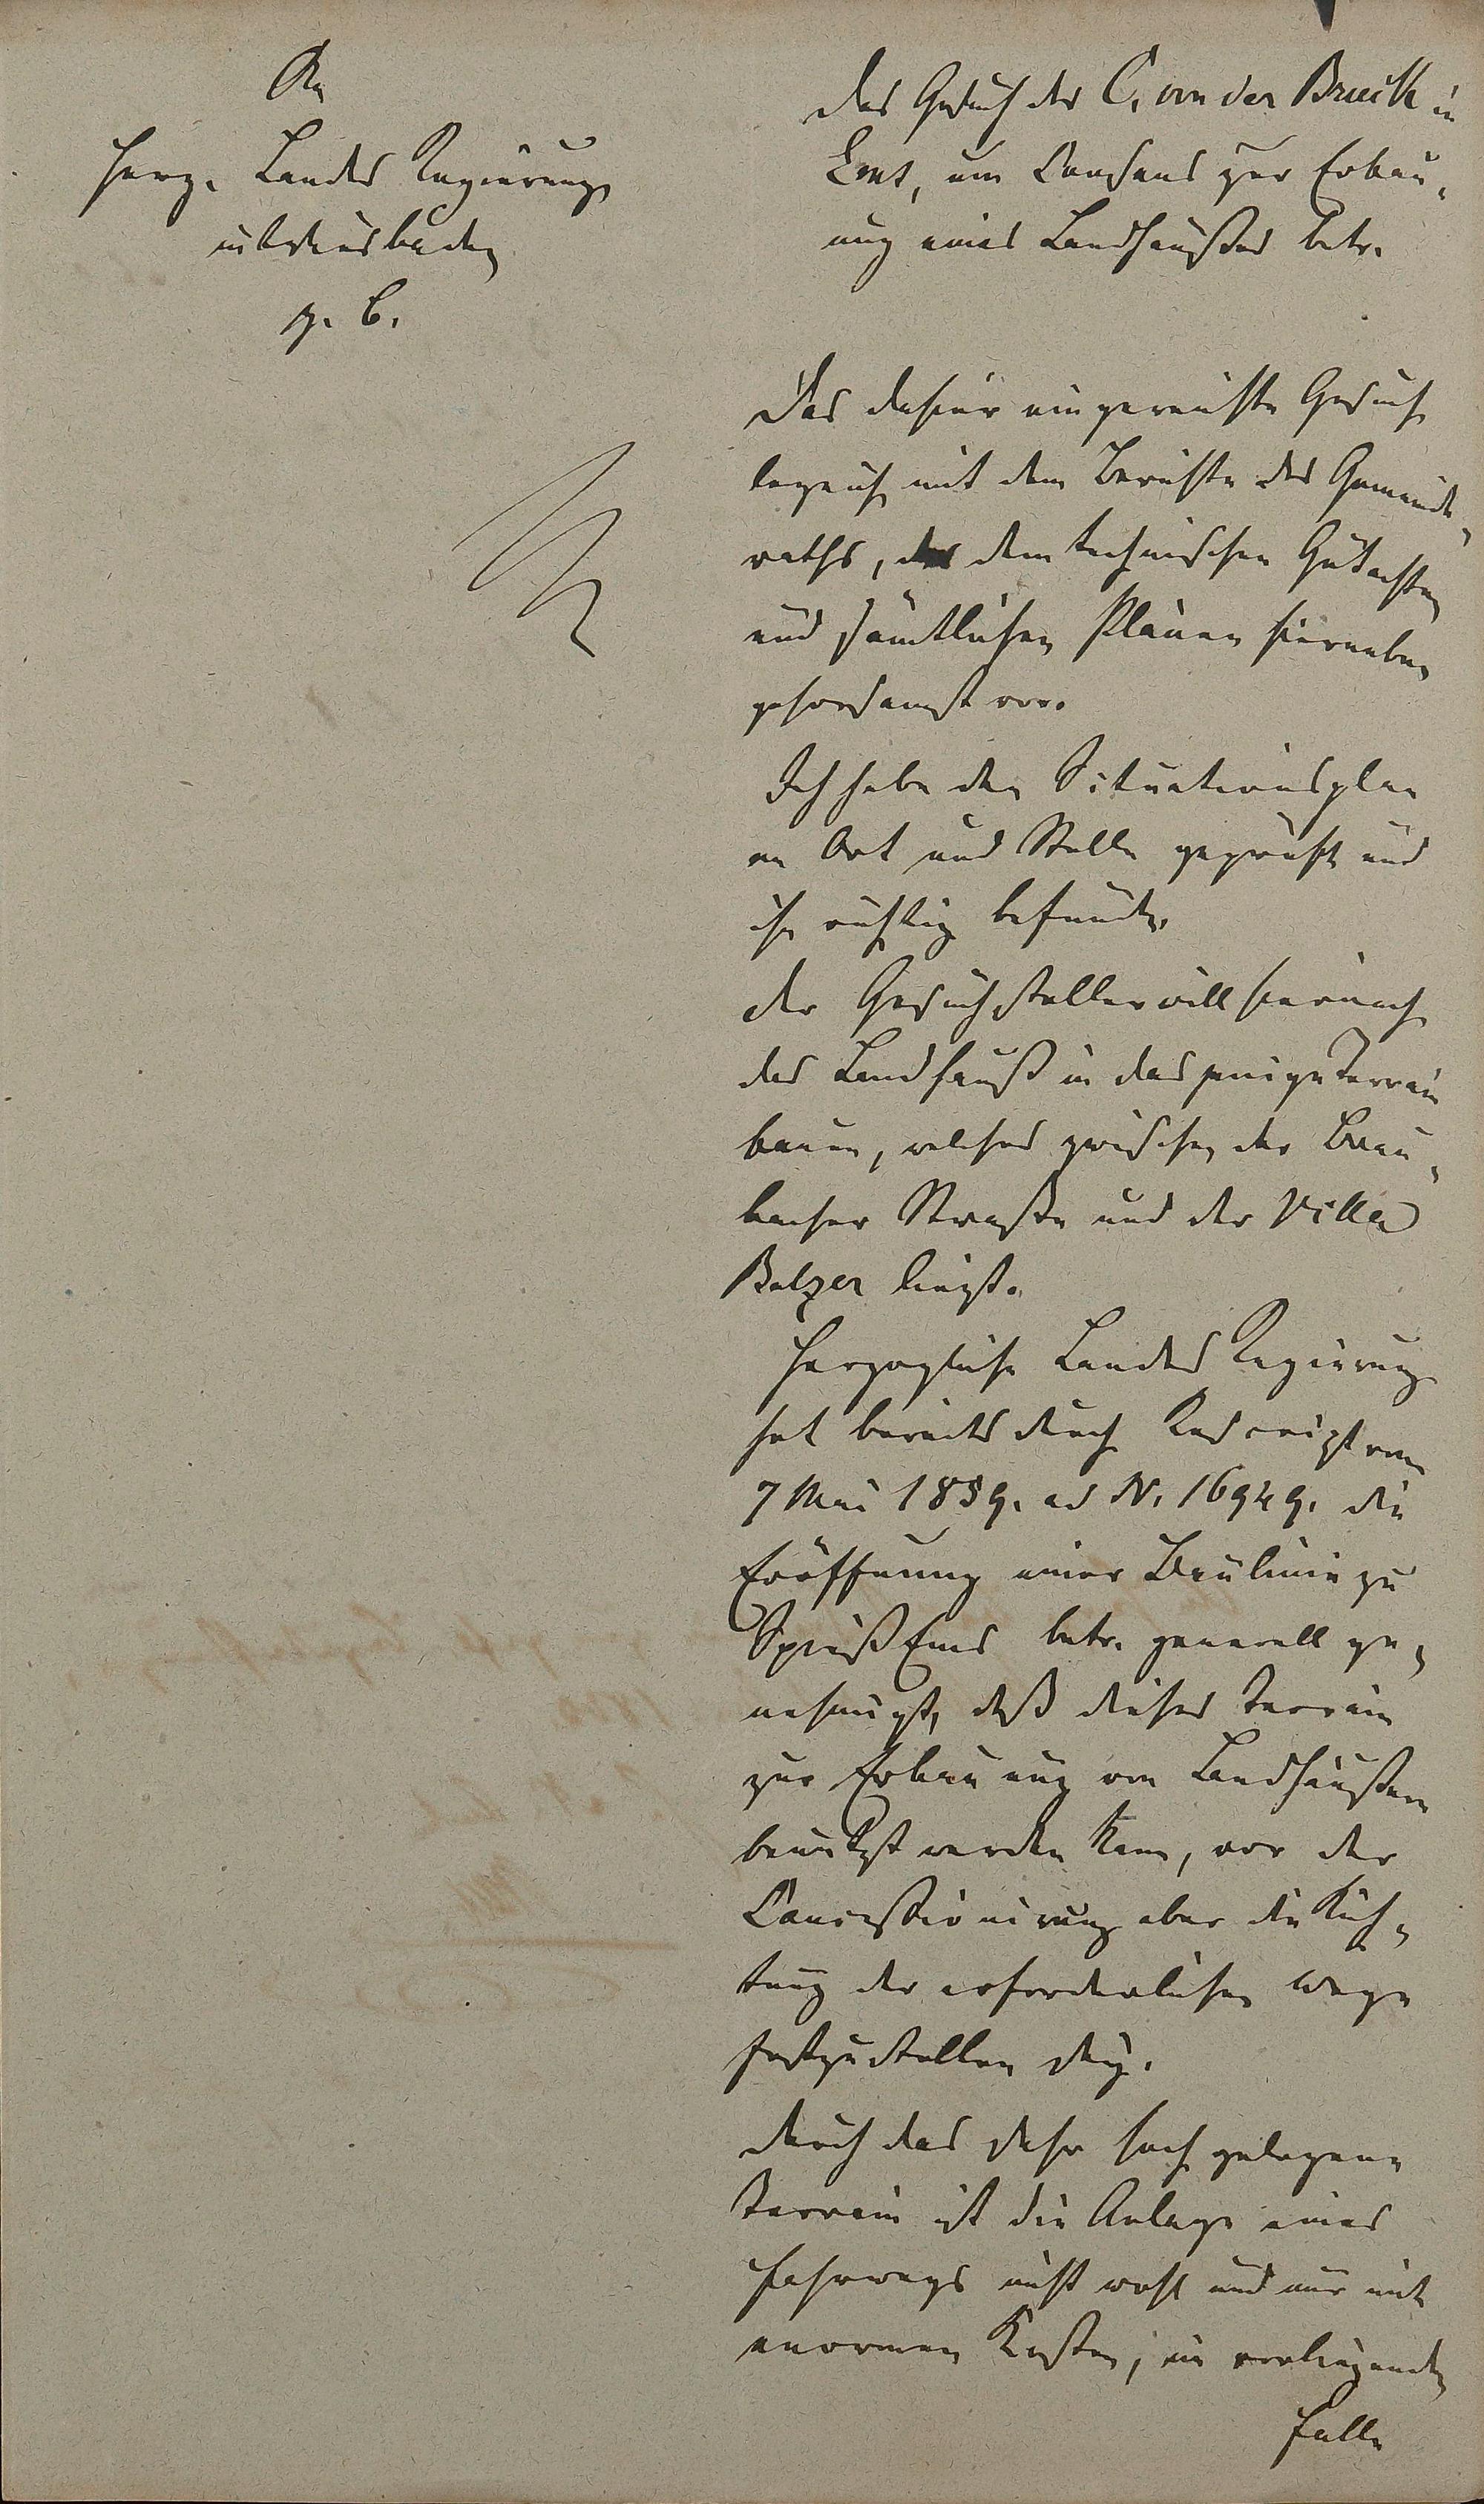 An
Herz. Landes Regierung
in Wiesbaden
g. B.
Das Gesuch des C. von der Bruck in
Ems, um Consens zur Erbau-
ung eines Landhaußes betr.
Das dahier eingereichte Gesuch
lege ich mit dem Berichte des Gemeinde-
raths, dem technischen Gutachten
und sämtlichen Plänen hierneben
gehorsamst vor.
Ich habe den Situationsplan
an Ort und Stelle geprüft und
ihn richtig befunden.
Der Gesuchsteller will hiernach
das Landhauß in dasjenige Terrain
bauen, welches zwischen der Brau-
bacher Straße und der Villa
Balzer liegt.
Herzogliche Landes Regierung
hat bereits durch Rescript vom
7 Mai 1859. ad N. 16949. die
Eröffnung einer Baulinie zu
Spieß Ems betr. generell ge-
nehmigt, daß dieses Terrain
zur Erbauung von Landhäußern
benutzt werden kann, vor der
Concessionirung aber die Rich-
tung der erforderlichen Wege
festzustellen sey.
Durch das sehr hoch gelegene
Terrain ist die Anlage eines
Fahrwegs nicht wohl und nur mit
enormen Kosten, im vorliegenden
Falle